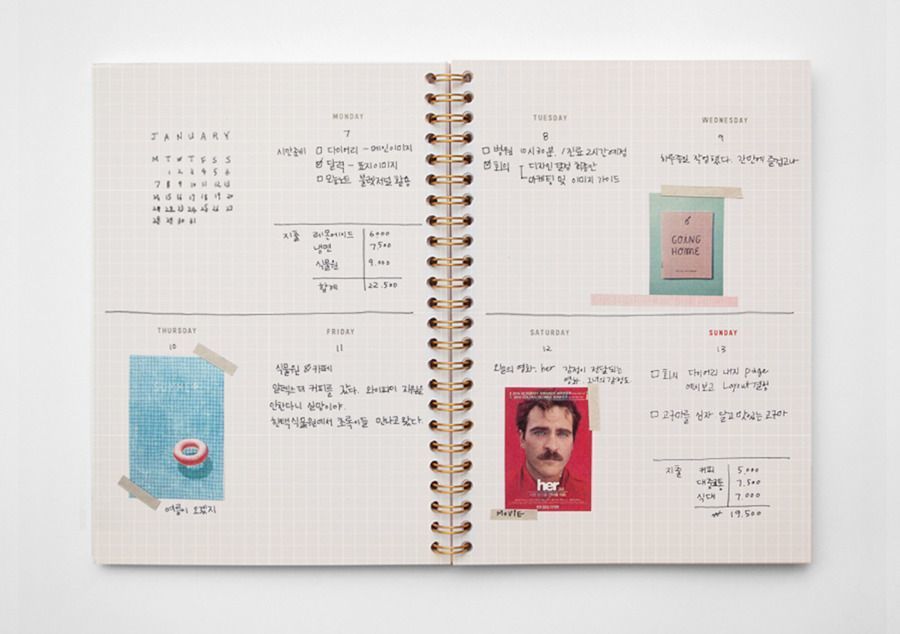 JANUARY
M T W T F S S
1 2 3 4 5 6
7 8 9 10 11 12 13
14 15 16 17 18 19 20
21 22 23 24 25 26 27
28 29 30 31
MONDAY
7
시안준비 다이어리 - 메인이미지
달력 - 표지이미지
오늘노트 블랙저널 촬영
지출 레몬에이드 6000
냉면 7,500
식물원 9.000
합계 22.500
TUESDAY
8
병원 10시 30분. / 진료 2시간예정
회의 디자인 결정 최종안
마케팅 및 이미지 가이드
WEDNESDAY
9
작업했다. 간만에 즐겁고나
GOING
HOME
THURSDAY
10
여름이 오겠지
FRIDAY
11
식물원 & 카페
알렉스더커피를 갔다. 와이파이
안한다니 실망이야.
식물원에서 초록이들 만나고 왔다.
SATURDAY
12
오늘의 영화. her 감정이 전달되는
영화.
her
MOVIE
SUNDAY
13
회의 다이어리 내지 page
예시보고 Layout 결정
고구마를 심자 달고 맛있는 고구마
지출 커피 5,000
대중교통 7.500
식대 7.000
# 19,500